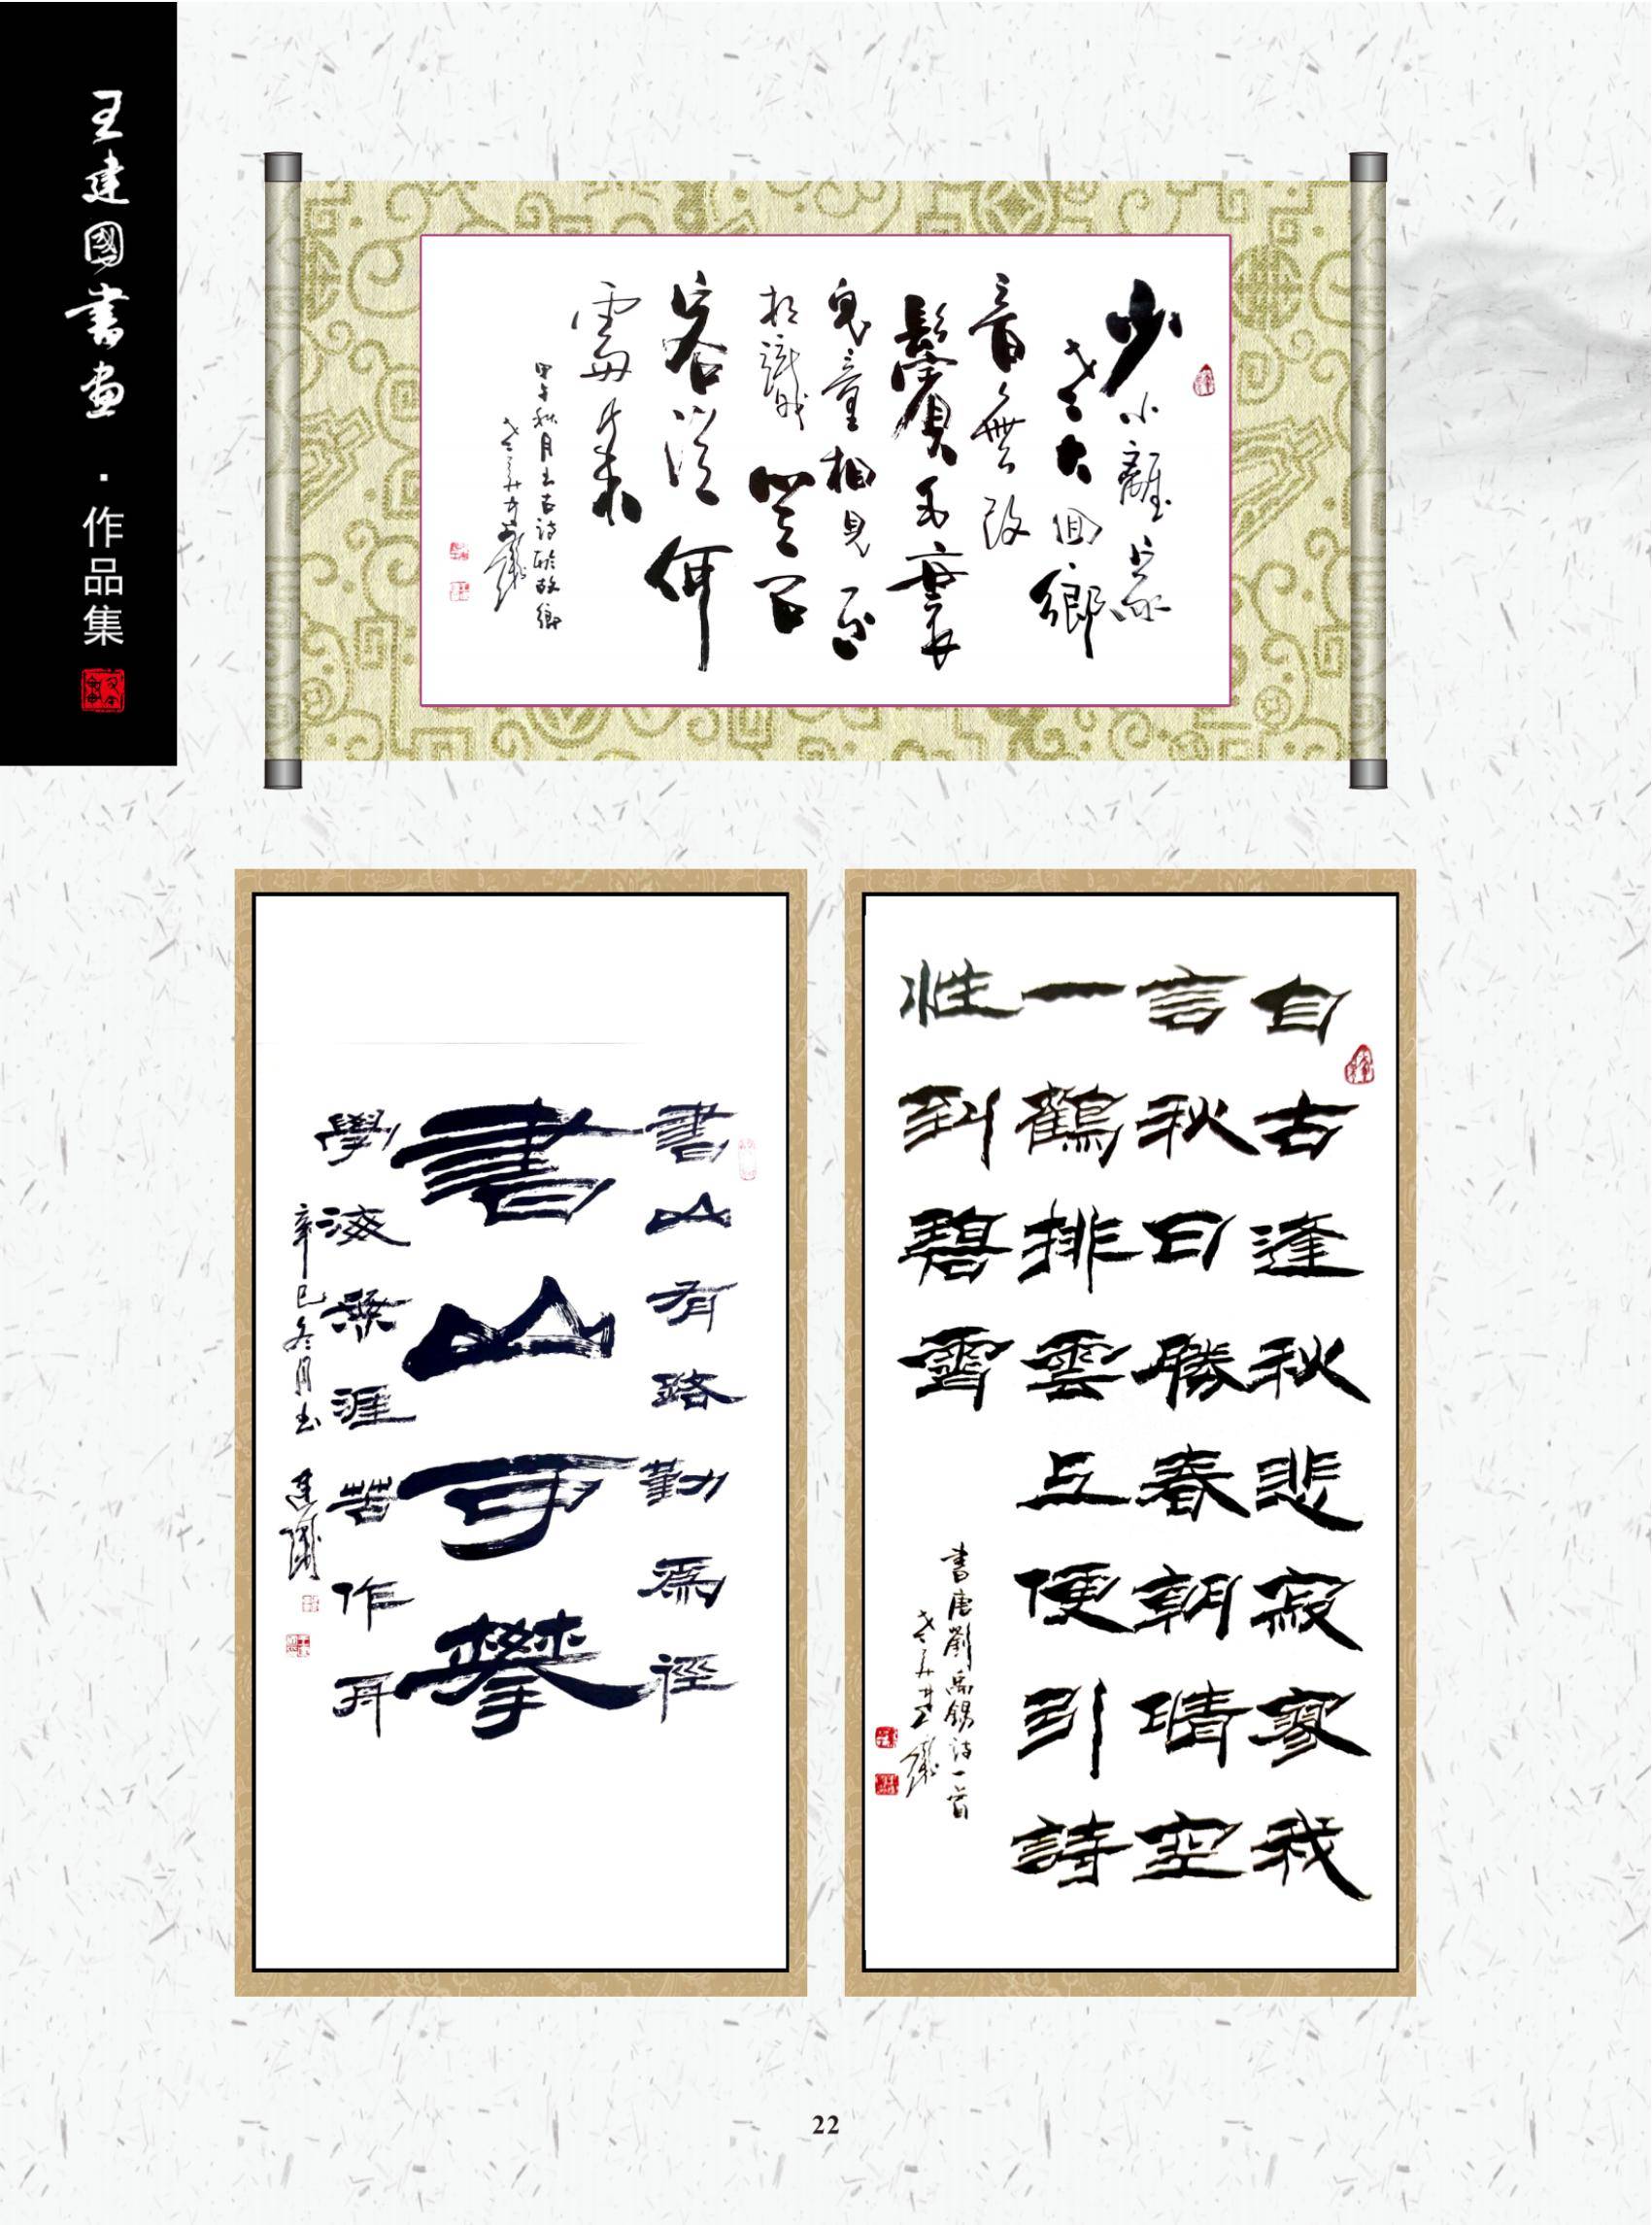 王建國書畫·作品集
少小離家
老大回鄉
音無改
鬢毛衰
兒童相見不
相識笑問
客從何
處來
甲午秋月書古詩於故鄉
自古逢秋悲寂寥我
言秋日勝春朝晴空
一鶴排雲上便引詩
性到碧霽
書唐劉禹錫詩一首
書山有路勤為徑
書山可攀
學海無涯苦作舟
辛巳冬月書 建國
22